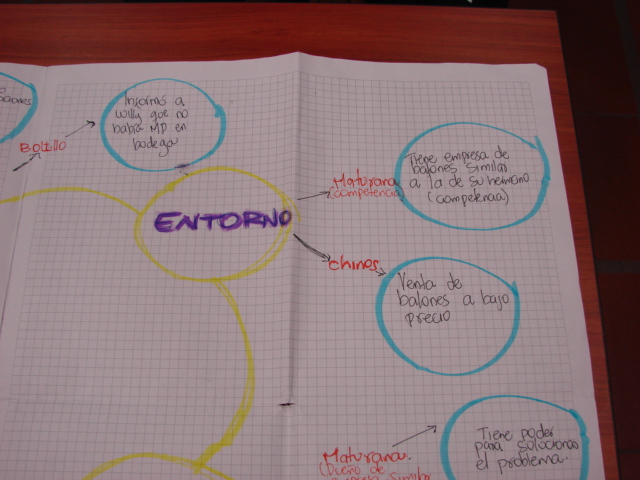 balones
Bolillo
Informó a
willy que no
había MP en
bodega
ENTORNO
Maturana
(competencia)
Tiene empresa de
balones similar
a la de su hermano
(competencia)
chinos
Venta de
balones a bajo
precio
Maturana.
(Dueño de
similar
Tiene poder
para solucionar
el problema.